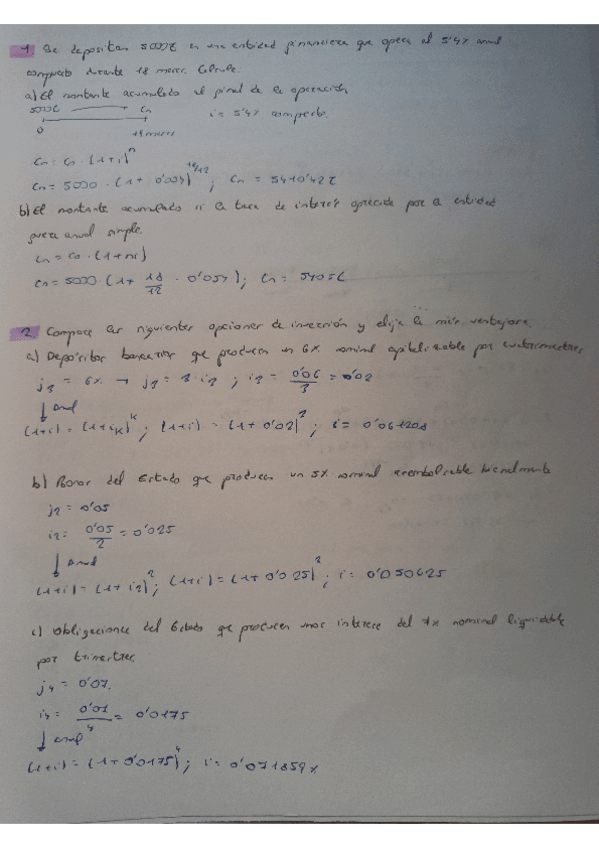 1 Se depositan 5000€ en una entidad financiera que opera al 5'4% anual
compuesto durante 18 meses. Calcule.
a) El montante acumulado al final de la operación
5000€ Cn i = 5'4% compuesto.
0 18 meses
Cn = Co · (1+i)^n
Cn = 5000 · (1 + 0'054)^18/12 ; Cn = 5410'42€
b) El montante acumulado si la tasa de interés ofrecida por la entidad
fuera anual simple.
Cn = Co · (1+ni)
Cn = 5000 · (1 + 18/12 · 0'054) ; Cn = 5405€
2 Compare las siguientes opciones de inversión y elija la más ventajosa
a) Depósitos bancarios que producen un 6% nominal capitalizable por cuatrimestres
j3 = 6% → j3 = 3 i3 ; i3 = 0'06/3 = 0'02
↓ anual
(1+i) = (1+ik)^k ; (1+i) = (1+0'02)^3 ; i = 0'061208
b) Bonos del Estado que producen un 5% nominal
j2 = 0'05
i2 = 0'05/2 = 0'025
↓ anual
(1+i) = (1+i2)^2 ; (1+i) = (1+0'025)^2 ; i = 0'050625
c) Obligaciones del Estado que producen unos intereses del 7% nominal liquidable
por trimestres.
j4 = 0'07.
i4 = 0'07/4 = 0'0175
↓ anual
(1+i) = (1+0'0175)^4 ; i = 0'071859%